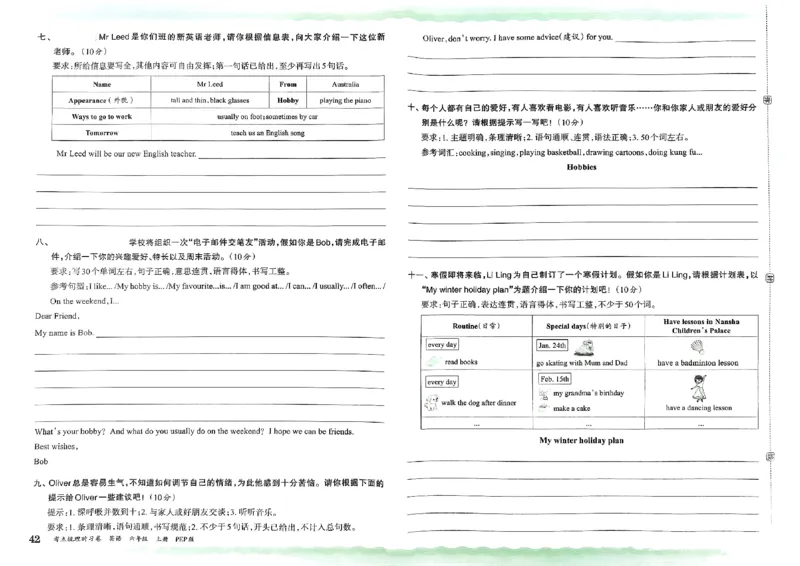 七、 Mr Leed是你们班的新英语老师,请你根据信息表,向大家介绍一下这位新
老师。(10分)
要求:所给信息要写全,其他内容可自由发挥;第一句话已给出,至少再写出5句话。
Name Mr Leed From Australia
Appearance(外貌) tall and thin, black glasses Hobby playing the piano
Ways to go to work usually on foot;sometimes by car
Tomorrow teach us an English song
Mr Leed will be our new English teacher.
八、 学校将组织一次“电子邮件交笔友”活动,假如你是Bob,请完成电子邮
件,介绍一下你的兴趣爱好、特长以及周末活动。(10分)
要求:写30个单词左右,句子正确,意思连贯,语言得体,书写工整。
参考句型:I like... /My hobby is... /My favourite...is... /I am good at... /I can... /I usually... /I often... /
On the weekend, I...
Dear Friend,
My name is Bob.
What's your hobby? And what do you usually do on the weekend? I hope we can be friends.
Best wishes,
Bob
九、Oliver总是容易生气,不知道如何调节自己的情绪,为此他感到十分苦恼。请你根据下面的
提示给Oliver一些建议吧!(10分)
提示:1. 深呼吸并数到十;2. 与家人或好朋友交谈;3. 听听音乐。
要求:1. 条理清晰,语句通顺,书写规范;2. 不少于5句话,开头已给出,不计入总句数。
42 考点梳理时习卷 英语 六年级 上册 PEP版
Oliver, don't worry. I have some advice(建议) for you.
十、每个人都有自己的爱好,有人喜欢看电影,有人喜欢听音乐……你和你家人或朋友的爱好分
别是什么呢?请根据提示写一写吧!(10分)
要求:1. 主题明确,条理清晰;2. 语句通顺、连贯,语法正确;3. 50个词左右。
参考词汇:cooking, singing, playing basketball, drawing cartoons, doing kung fu...
Hobbies
十一、寒假即将来临,Li Ling为自己制订了一个寒假计划。假如你是Li Ling,请根据计划表,以
“My winter holiday plan”为题介绍一下你的计划吧!(10分)
要求:句子正确,表达连贯,语言得体,书写工整,不少于50个词。
Routine(日常) Special days(特别的日子) Have lessons in Nansha Children's Palace
every day Jan. 24th
read books go skating with Mum and Dad have a badminton lesson
every day Feb. 15th
walk the dog after dinner my grandma's birthday
make a cake have a dancing lesson
... ... ...
My winter holiday plan